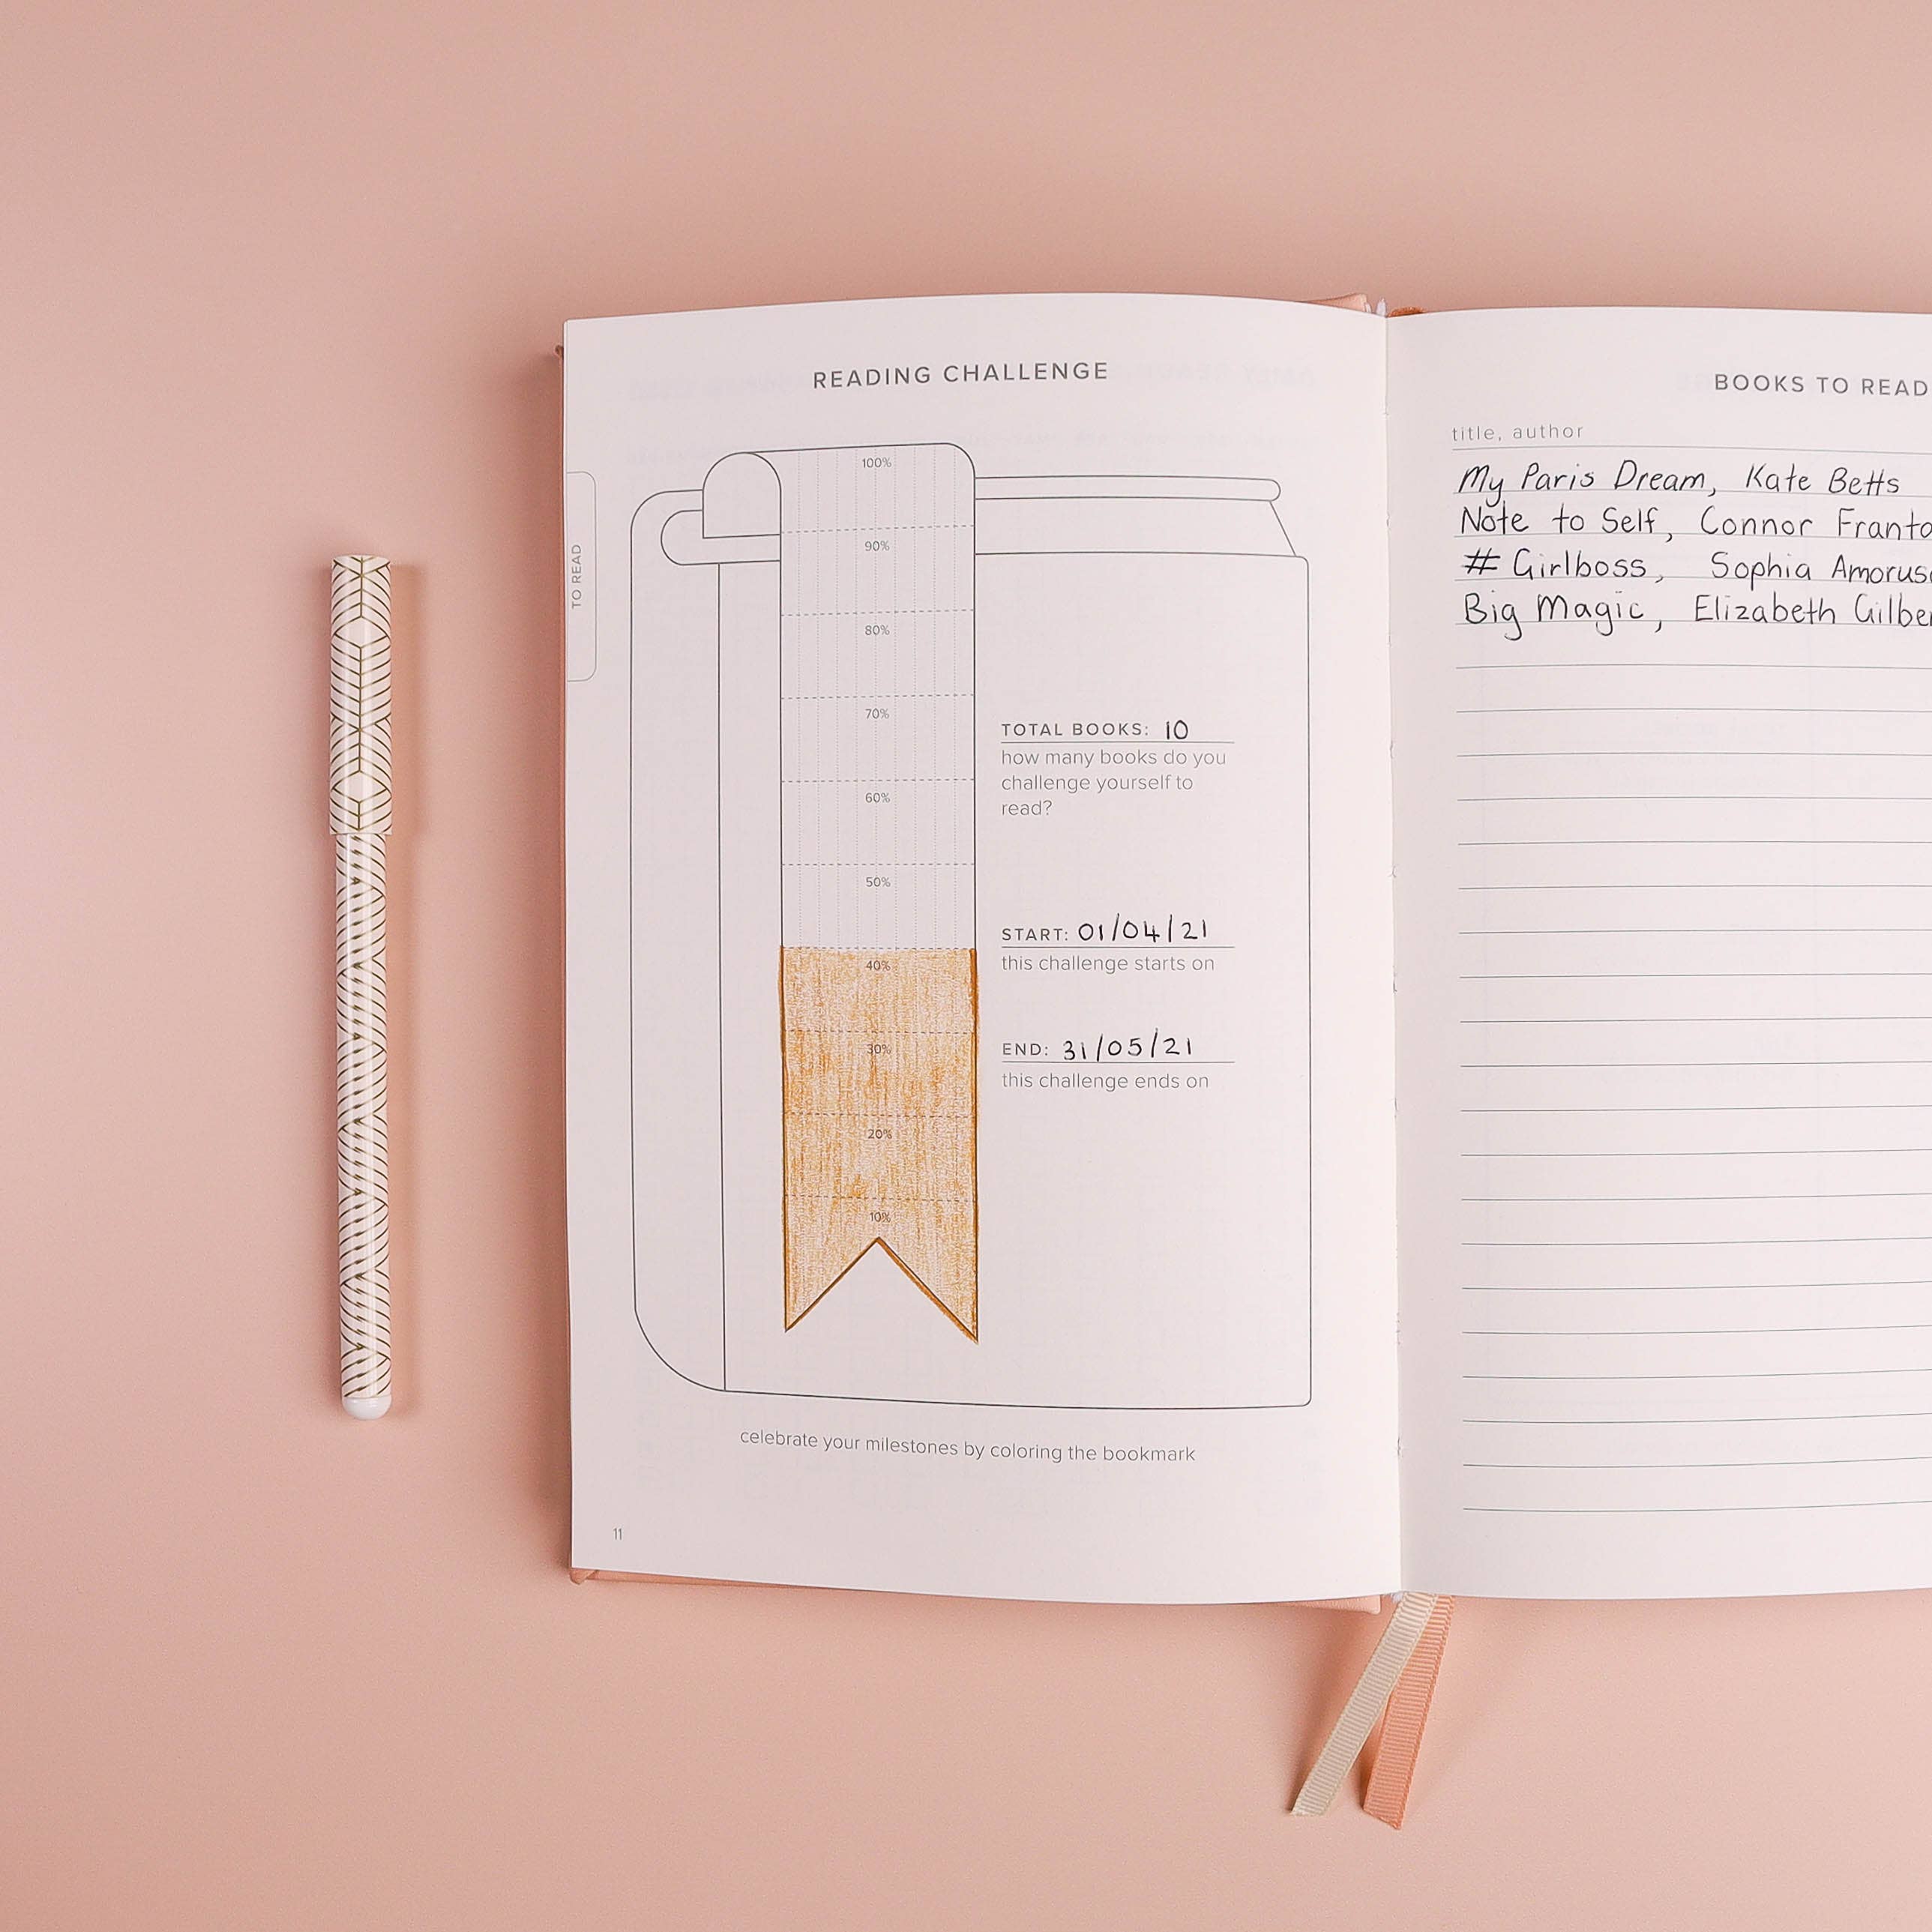 READING CHALLENGE
TO READ
100%
90%
80%
70%
60%
50%
40%
30%
20%
10%
TOTAL BOOKS: 10
how many books do you
challenge yourself to
read?
START: 01/04/21
this challenge starts on
END: 31/05/21
this challenge ends on
celebrate your milestones by coloring the bookmark
11
BOOKS TO READ
title, author
My Paris Dream, Kate Betts
Note to Self, Connor Franta
# Girlboss, Sophia Amorus
Big Magic, Elizabeth Gilber